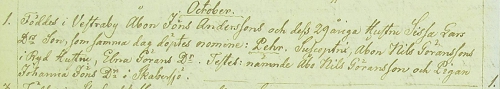 October.
1. Föddes i Westraby Åbon Jöns Anderssons och dess 29åriga Hustru Sissa Lars
Dr Son, som samma dag döptes onomine: Pehr. Susceptrix, Åbon Nils Göranssons
i Ryd Hustru, Elna Görans Dr. Testes: nämnde Åbo Nils Göransson och Pigan
Johanna Jöns Dr i Skabersjö.